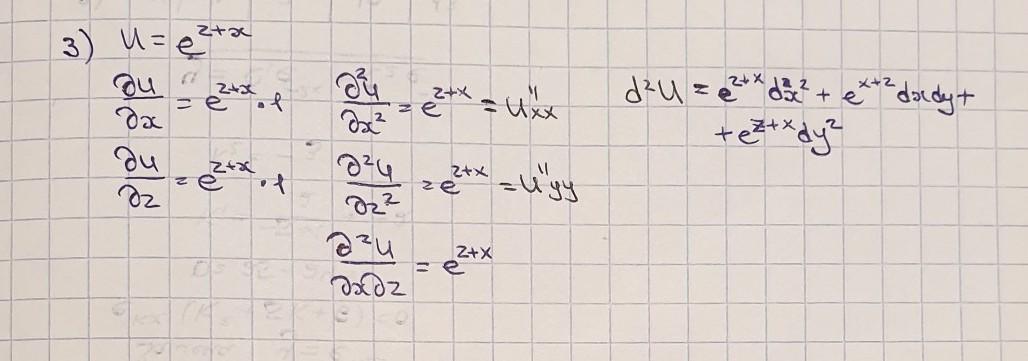 3) U = e^{z+x}
∂U/∂x = e^{z+x} · 1    ∂²U/∂x² = e^{z+x} = U''xx    d²U = e^{z+x} dx² + e^{x+z} dxdy +
+ e^{z+x} dy²
∂U/∂z = e^{z+x} · 1    ∂²U/∂z² = e^{z+x} = U''yy
∂²U/∂x∂z = e^{z+x}